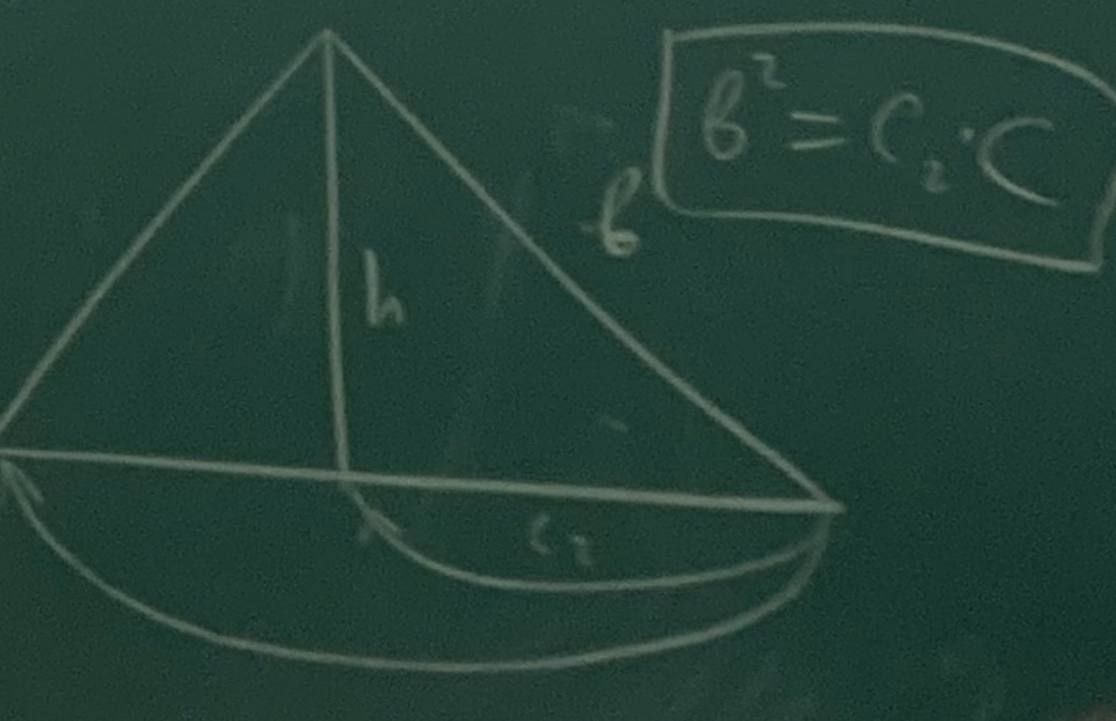 b² = C₂·C
b
h
c₂